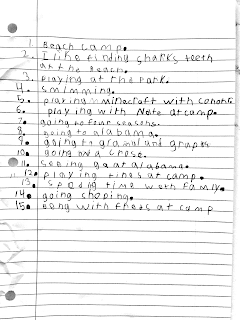 1. Beach camp.
2. I like finding sharks teeth
at the Beach.
3. Playing at the Park.
4. Smimming.
5. playing minecraft with
6. playing with Nate at camp.
7. going to four seasons.
8. going to alabama.
9. going to and
10. going on a
11. seeing at alabama.
12. playing at camp.
13. Speding time with Family.
14. going shoping.
15. with at camp